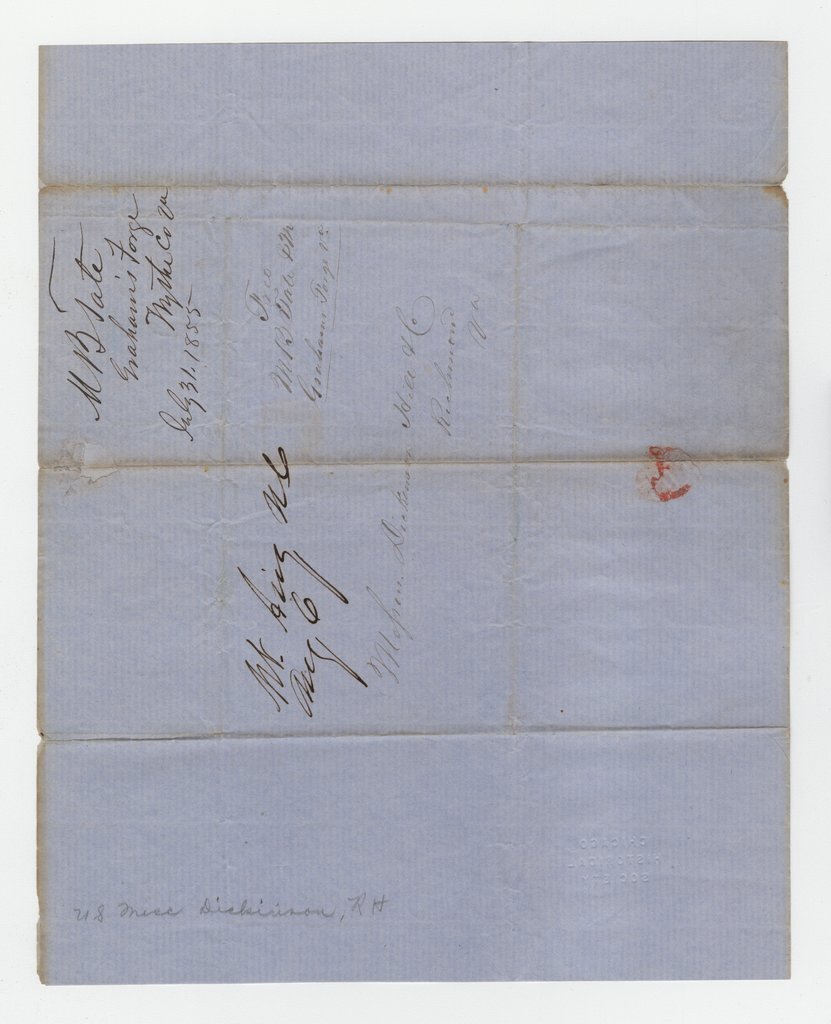 M B Tate
Graham's Forge
Wythe Co Va
July 31. 1855
Free
M B Tate P M
Graham's Forge Va
Messrs. Dickinson Hill & Co
Richmond
Va
Aug 6
U S Misc Dickinson, R H
CHICAGO
HISTORICAL
SOCIETY